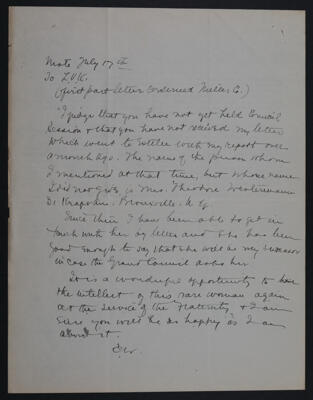 Wrote July 17th
To L.V.K.
(first part letter concerned Miller, E.)
"I judge that you have not yet held Council
Session & that you have not received my letter
which went to with my report over
a month ago. The name of the person whom
I mentioned at that time, but whose name
I did not give is Mrs. Theodore Westermann
Bronxville. N.Y.
Since then I have been able to get in
touch with her by letter and she has been
good enough to say that she will as my successor
in case the Grand Council asks her.
It is a wonderful opportunity to have
the intellect of this rare woman again
at the service of the Fraternity & I am
sure you will be as happy as I am
about it.